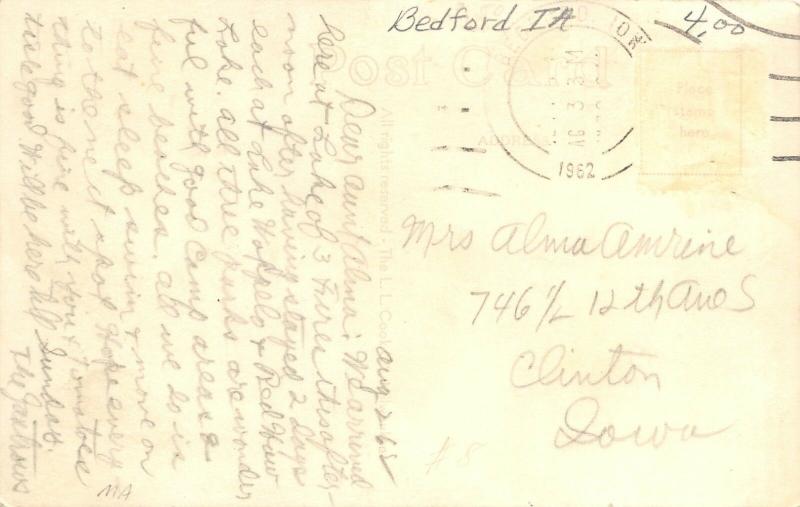 Bedford IA
4,00
Post Card
Place
stamp
here
ADDRESS
AUG 3
1962
All rights reserved - The L.L. Cook
Aug 2 62
Dear Aunt Alma: We arrived
here at Lake of 3 Fires this after-
noon after having stayed 2 days
each at Lake Wapello & Red Haw
Lake. All the parks are wonder
ful with good camp areas &
fine beaches. All we do is
eat sleep swim & move on
to the next spot. Hope every
thing is fine with you &
are good Will be here till Sunday.
The
MA
Mrs Alma Amrine
746 1/2 12th Ave S
Clinton
Iowa
#8